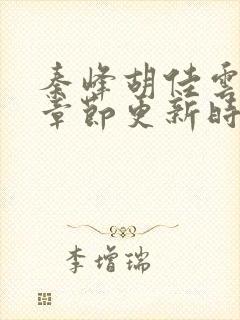 秦峰胡佳雲
章節更新時
李增瑞